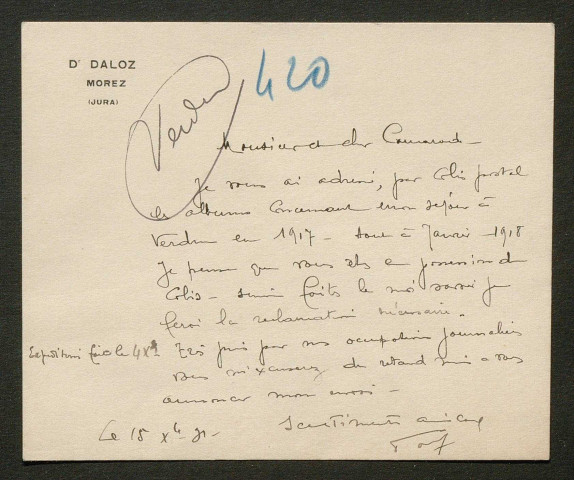 Dr DALOZ
MOREZ
(JURA)
Verdun
420
Monsieur et cher Camarade -
Je vous ai adressé, par colis postal
les albums concernant mon séjour à
Verdun en 1917 - Août à Janvier 1918
Je pense que vous êtes en possession du
colis - sinon faites le moi savoir je
ferai la réclamation nécessaire.
Expédition faite le 4 Xbre
Très pris par mes occupations journalières
vous m'excuserez du retard mis a vous
annoncer mon envoi -
Le 15 Xbre
Sentiments